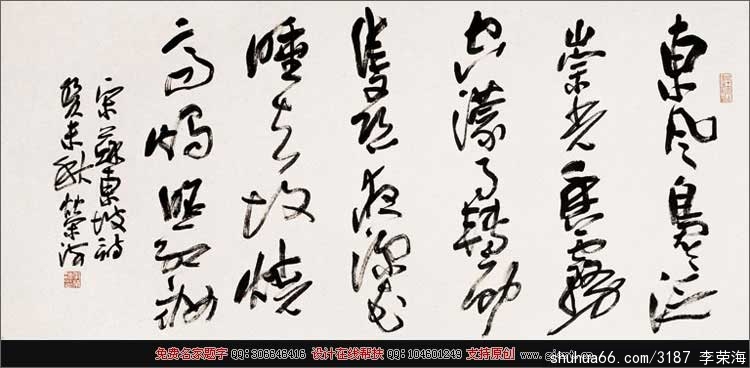 東風裊々泛
崇光香霧
空濛月轉廊
隻恐夜深花
睡去故燒
高燭照紅妝
宋蘇東坡詩
癸未秋荣海
免费名家题字 QQ:306646416 设计在线帮扶 QQ:104601249 支持原创
shuhua66.com/3187 李荣海